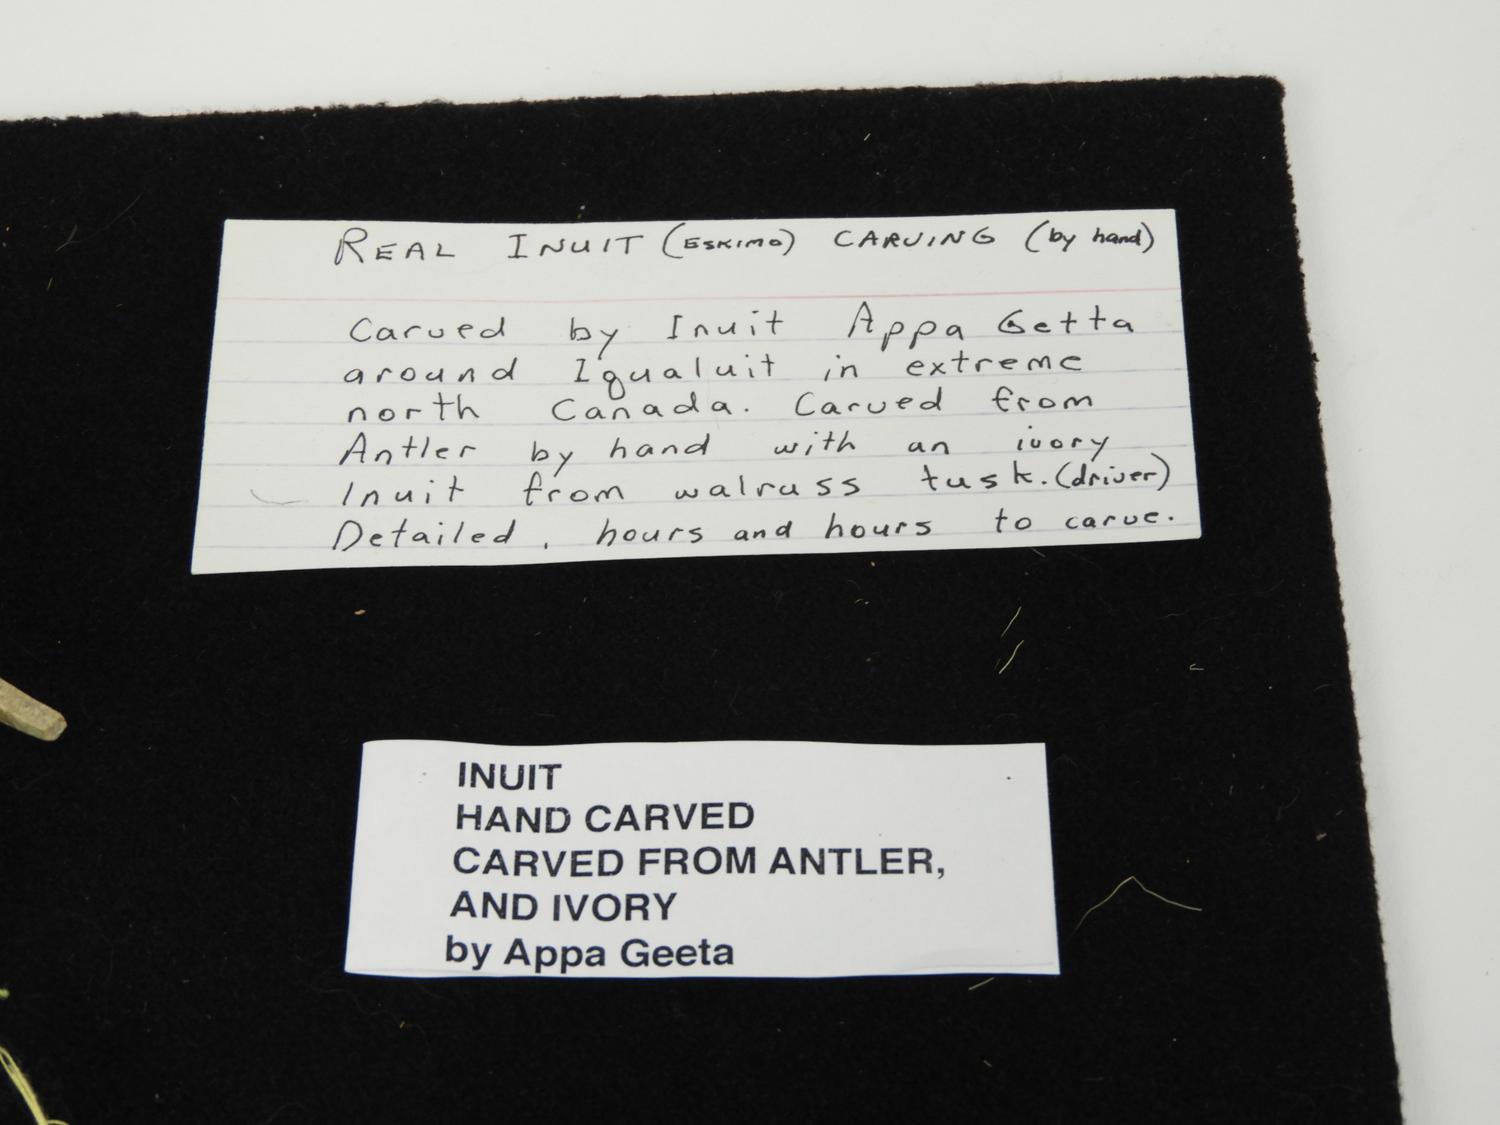 REAL INUIT (ESKIMO) CARVING (by hand)
Carved by Inuit Appa Getta
around Iqualuit in extreme
north Canada. Carved from
Antler by hand with an ivory
Inuit from walruss tusk. (driver)
Detailed, hours and hours to carve.
INUIT
HAND CARVED
CARVED FROM ANTLER,
AND IVORY
by Appa Geeta